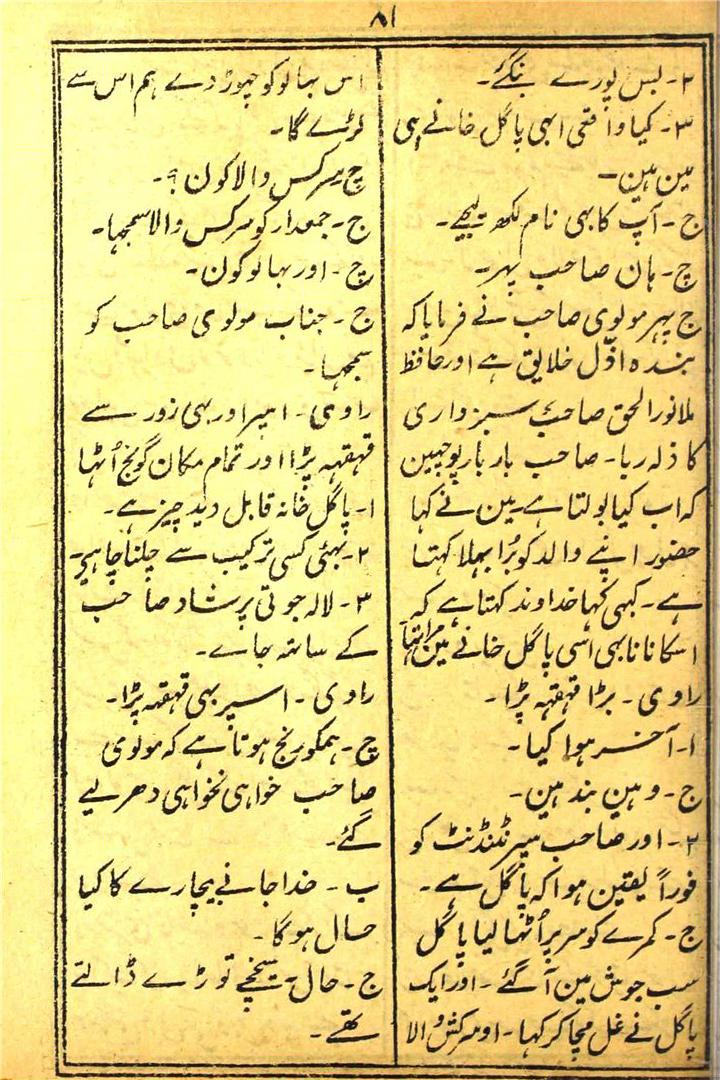 ۸۱
۲۔ بس پورے بنگئے۔
۳۔ کیا واقعی ابہی پاگل خانے ہی
مین ہین۔
ج۔ آپ کا بہی نام لکھ لیجیے۔
چ۔ ہان صاحب پہر۔
ج پہر مولوی صاحب نے فرمایا کہ
بندہ اوّل خلایق ہے اور حافظ
ملا نورالحق صاحب سبزواری
کا ذلہ ربا۔ صاحب بار بار پوچہین
کہ اب کیا بولتا ہے مین نے کہا
حضور اپنے والد کو بُرا بہلا کہتا
ہے۔ کبہی کہا خداوند کہتا ہے کہ
اسکا نانا بہی اسی پاگل خانے مین مرا تہا
راوی۔ بڑا قہقہہ پڑا۔
۱۔ آخر ہوا کیا۔
ج۔ وہین بند ہین۔
۲۔ اور صاحب سپرنٹنڈنٹ کو
فوراً یقین ہوا کہ پاگل ہے۔
ج۔ کمرے کو سر پر اُٹہا لیا پاگل
سب جوش مین آ گئے۔ اور ایک
پاگل نے غل مچا کر کہا۔ او سرکش والا
اس بہالو کو چہوڑ دے ہم اس سے
لڑے گا۔
چ سرکس والا کون ؟۔
ج۔ جمعدار کو سرکس والا سمجہا۔
چ۔ اور بہالو کون۔
ج۔ جناب مولوی صاحب کو
سمجہا۔
راوی۔ اسپر اور بہی زور سے
قہقہہ پڑا اور تمام مکان گونج اُٹہا
۱۔ پاگل خانہ قابل دید چیز ہے۔
۲۔ بہئی کسی ترکیب سے چلنا چاہیے۔
۳۔ لالہ جوتی پرشاد صاحب
کے ساتہ جاے۔
راوی۔ اسپر بہی قہقہہ پڑا۔
چ۔ ہمکو رنج ہوتا ہے کہ مولوی
صاحب خواہی نخواہی دہر لیے
گئے۔
ب۔ خدا جانے بیچارے کا کیا
حال ہو گا۔
ج۔ حال سیخچے توڑے ڈالتے
تھے۔